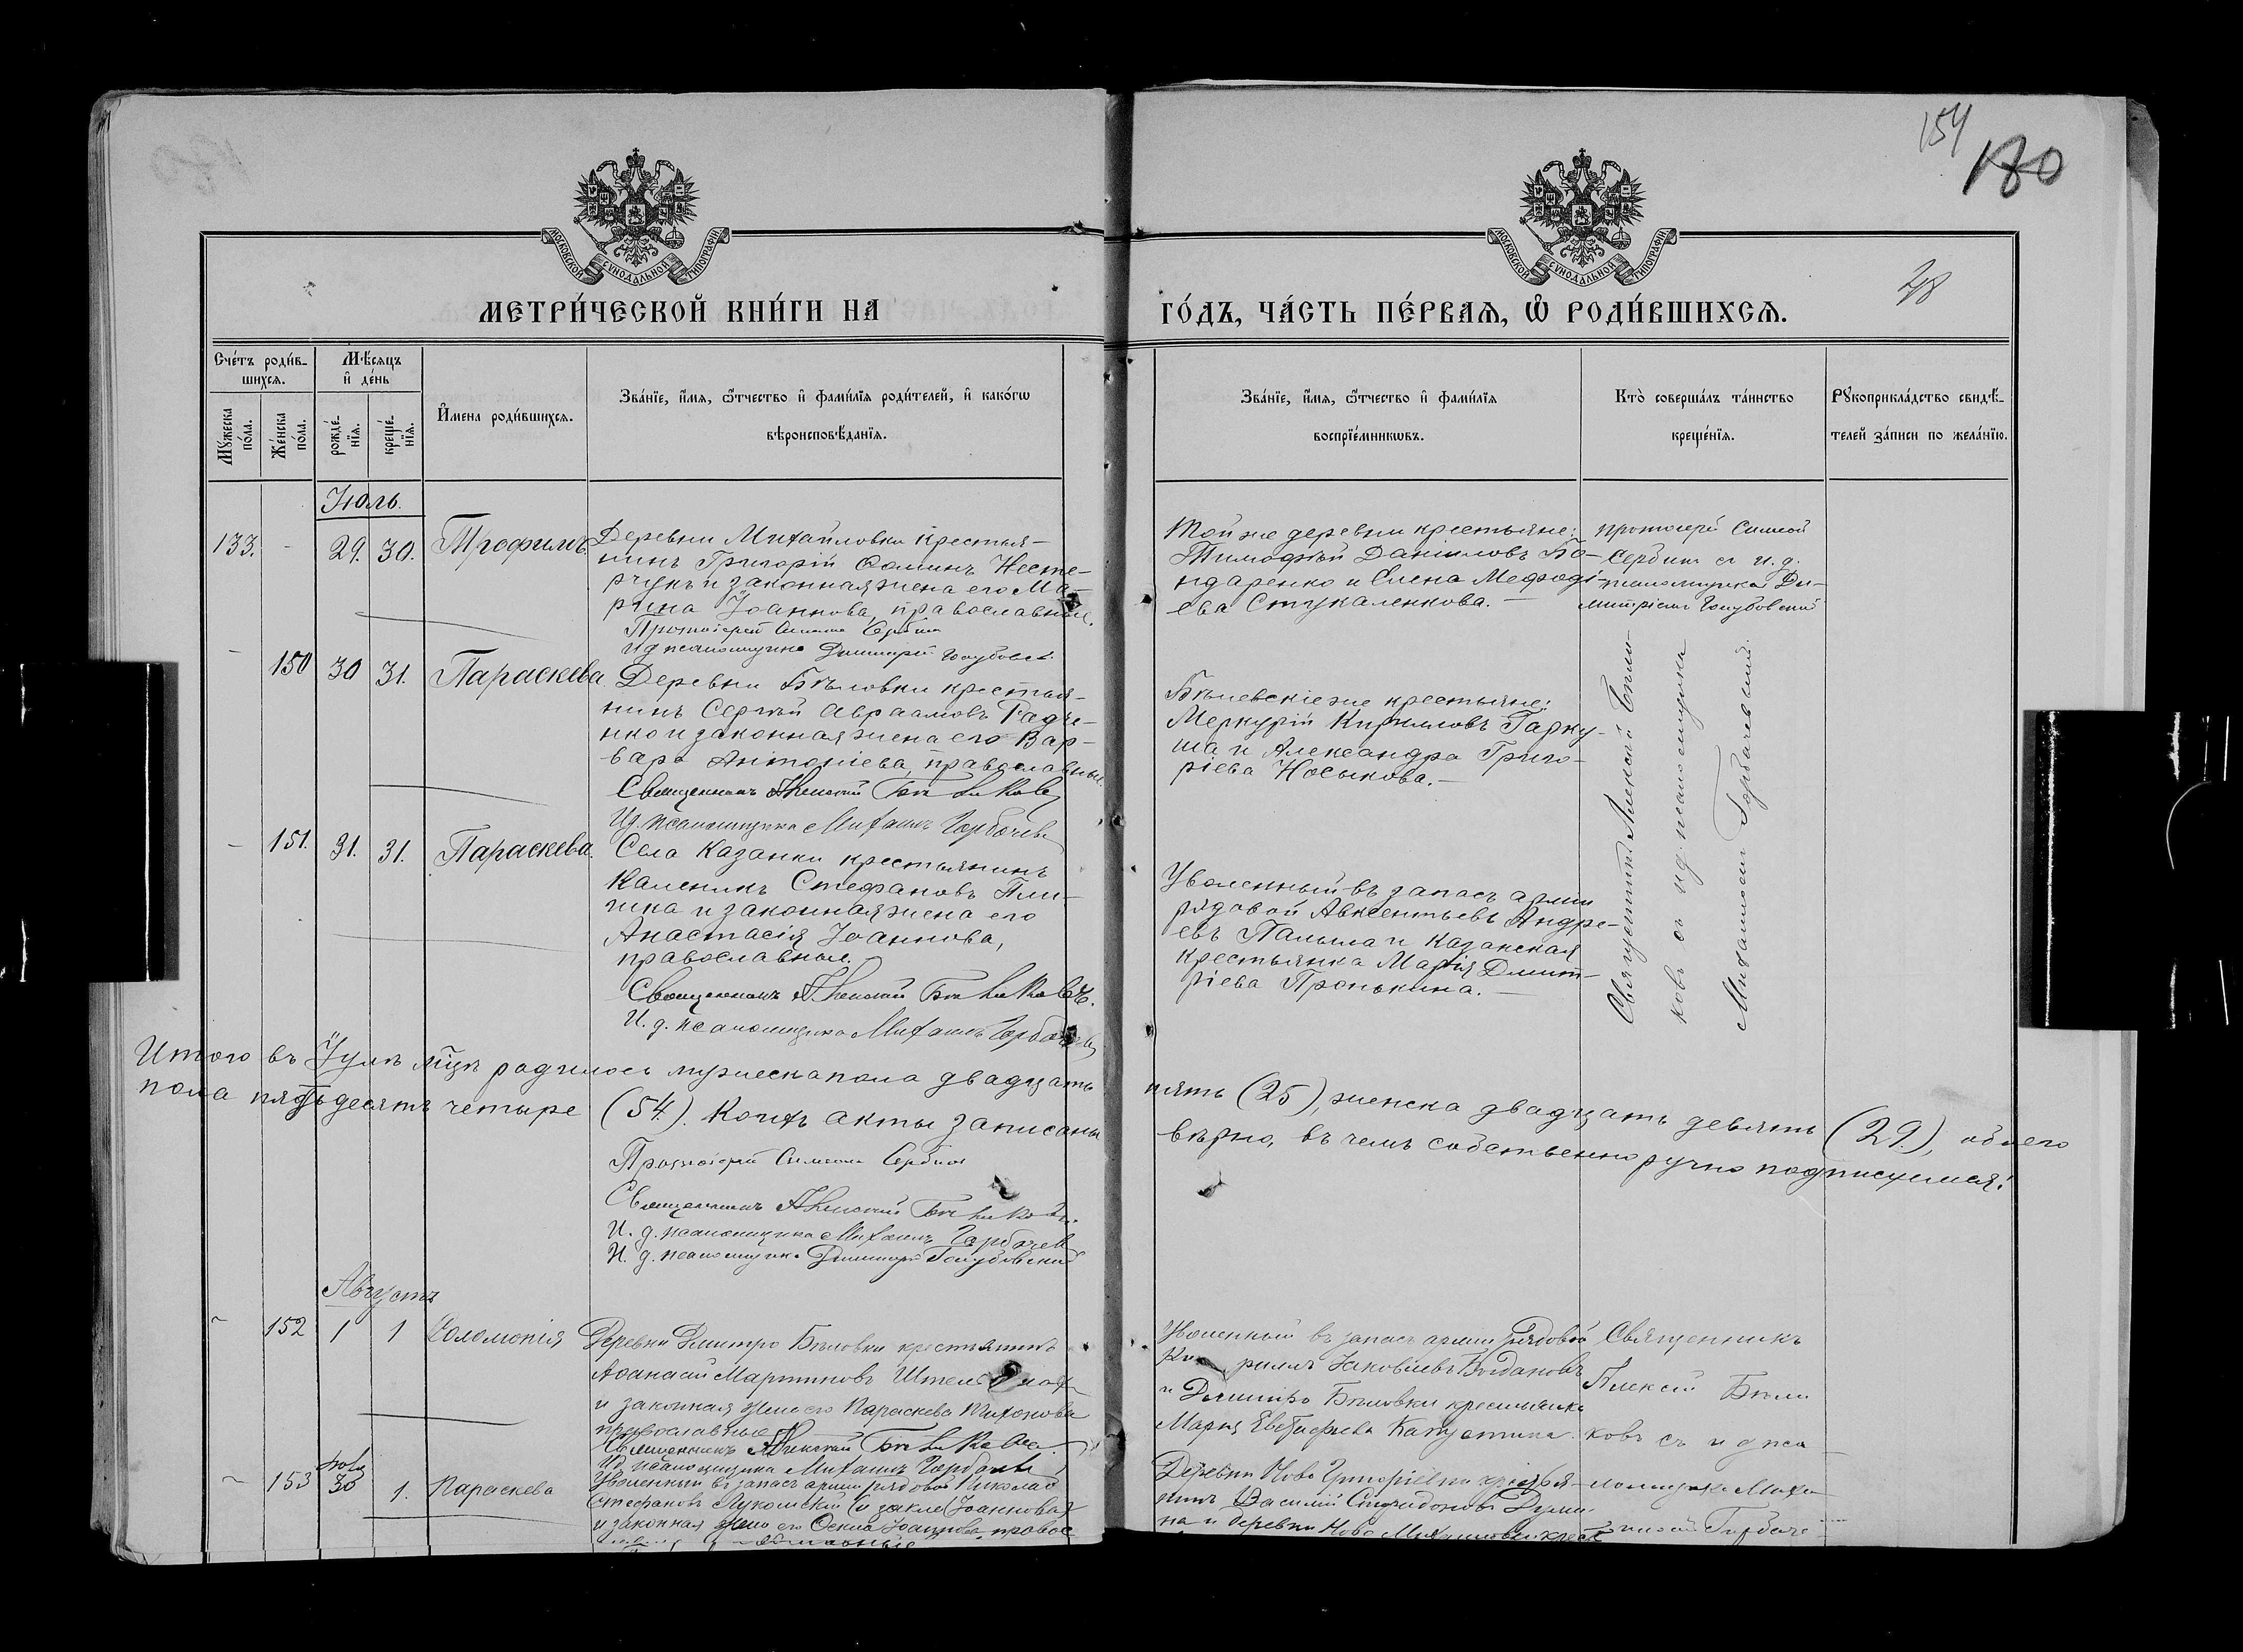 154
180
28
МОСКОВСКОЙ СѴНОДАЛЬНОЙ ТИПОГРАФІИ
МОСКОВСКОЙ СѴНОДАЛЬНОЙ ТИПОГРАФІИ
МЕТРИ́ЧЕСКОЙ КНИ́ГИ НА
ГО́ДЪ, ЧА́СТЬ ПЕ́РВАѦ, Ѽ РОДИ́ВШИХСѦ.
Сче́тъ роди́в-
шихсѧ.
Мѣ́сѧцъ
и҆ де́нь
Мꙋ́жеска по́ла.
Же́нска по́ла.
рожде́-
нїѧ.
креще́-
нїѧ.
И҆мена роди́вшихсѧ.
Зва́нїе, и҆́мѧ, ѻ҆́тчество и҆ фами́лїѧ роди́телей, и҆ како́гѡ
вѣроисповѣ́данїѧ.
Зва́нїе, и҆́мѧ, ѻ҆́тчество и҆ фами́лїѧ
воспрїе́мникѡвъ.
Кто̀ соверша́лъ та́инство
креще́нїѧ.
Рꙋкоприкла́дство свидѣ́-
телей за́писи по жела́нїю.
Іюль.
133. - 29. 30. Трофимъ.
Деревни Михайловки крестья-
нинъ Григорій Ѳоминъ Несте-
рчукъ и законная жена его Ма-
рина Іоаннова, православные.
Протоіерей Симеонъ Сербинъ
И д псаломщика Димитрій Голубовск
Той же деревни крестьяне:
Тимофѣй Даніиловъ Бо-
ндаренко и Елена Мефоді-
ева Стукаленкова. -
протоіерей Симеонъ
Сербинъ съ и. д.
псаломщика Ди-
митріемъ Голубовскимъ
- 150 30 31. Параскева
Деревни Бѣловки крестья-
нинъ Сергѣй Авраамовъ Радче-
нко и законная жена его Вар-
вара Антоніева, православные
Священникъ Алексій Бѣликовъ
И.д. псаломщика Михаилъ Горбачевъ
Бѣлевскіе же крестьяне:
Меркурій Кирилловъ Гарку-
ша и Александра Григо-
ріева Носыкова. -
Священникъ Алексій Бѣли-
ковъ съ и.д. псаломщика
Михаиломъ Горбачевымъ.
- 151. 31. 31. Параскева.
Села Казанки крестьянинъ
Каленикъ Стефановъ
и законная жена его
Анастасія Іоаннова,
православные.
Священникъ Алексій Бѣликовъ.
И. д. псаломщика Михаилъ Горбачевъ
Уволенный въ запасъ арміи
рядовой Авксентьевъ Андре-
евъ и Казанская
крестьянка Марія Дмит-
ріева Пронькина. -
Итого въ Іюлѣ м-цѣ родилось мужеска пола двадцать
пять (25), женска двадцать девять (29.), обоего
пола пятьдесятъ четыре (54). Коихъ акты записаны
вѣрно, въ чемъ собственноручно подписуемся:
Протоіерей Симеонъ Сербинъ
Священникъ Алексій Бѣликовъ.
И. д. псаломщика Михаилъ Горбачевъ
И. д. псаломщика Димитрій Голубовскій
Августъ
152 1 1 Соломонія
Деревни Дмитро Бѣловки крестьянинъ
Аѳанасій Мартиновъ
и законная жена его Параскева Тихонова
православные
Священникъ Алексій Бѣликовъ.
И.д. псаломщика Михаилъ Горбачевъ
Уволенный въ запасъ арміи рядовой
Кириллъ Іаковлевъ Богдановъ
и Дмитро Бѣловки крестьянка
Марія Капустина.
Священникъ
Алексій Бѣли
ковъ съ и д пса
153 Іюль 30 1. Параскева
Уволенный въ запасъ арміи рядовой Николай
Стефановъ
и законная жена его Іоаннова правос
Деревни Ново Григорiевки крестья-
нинъ Василій Спиридоновъ
на и деревни Ново крест
ломщика Миха
иломъ Горбаче